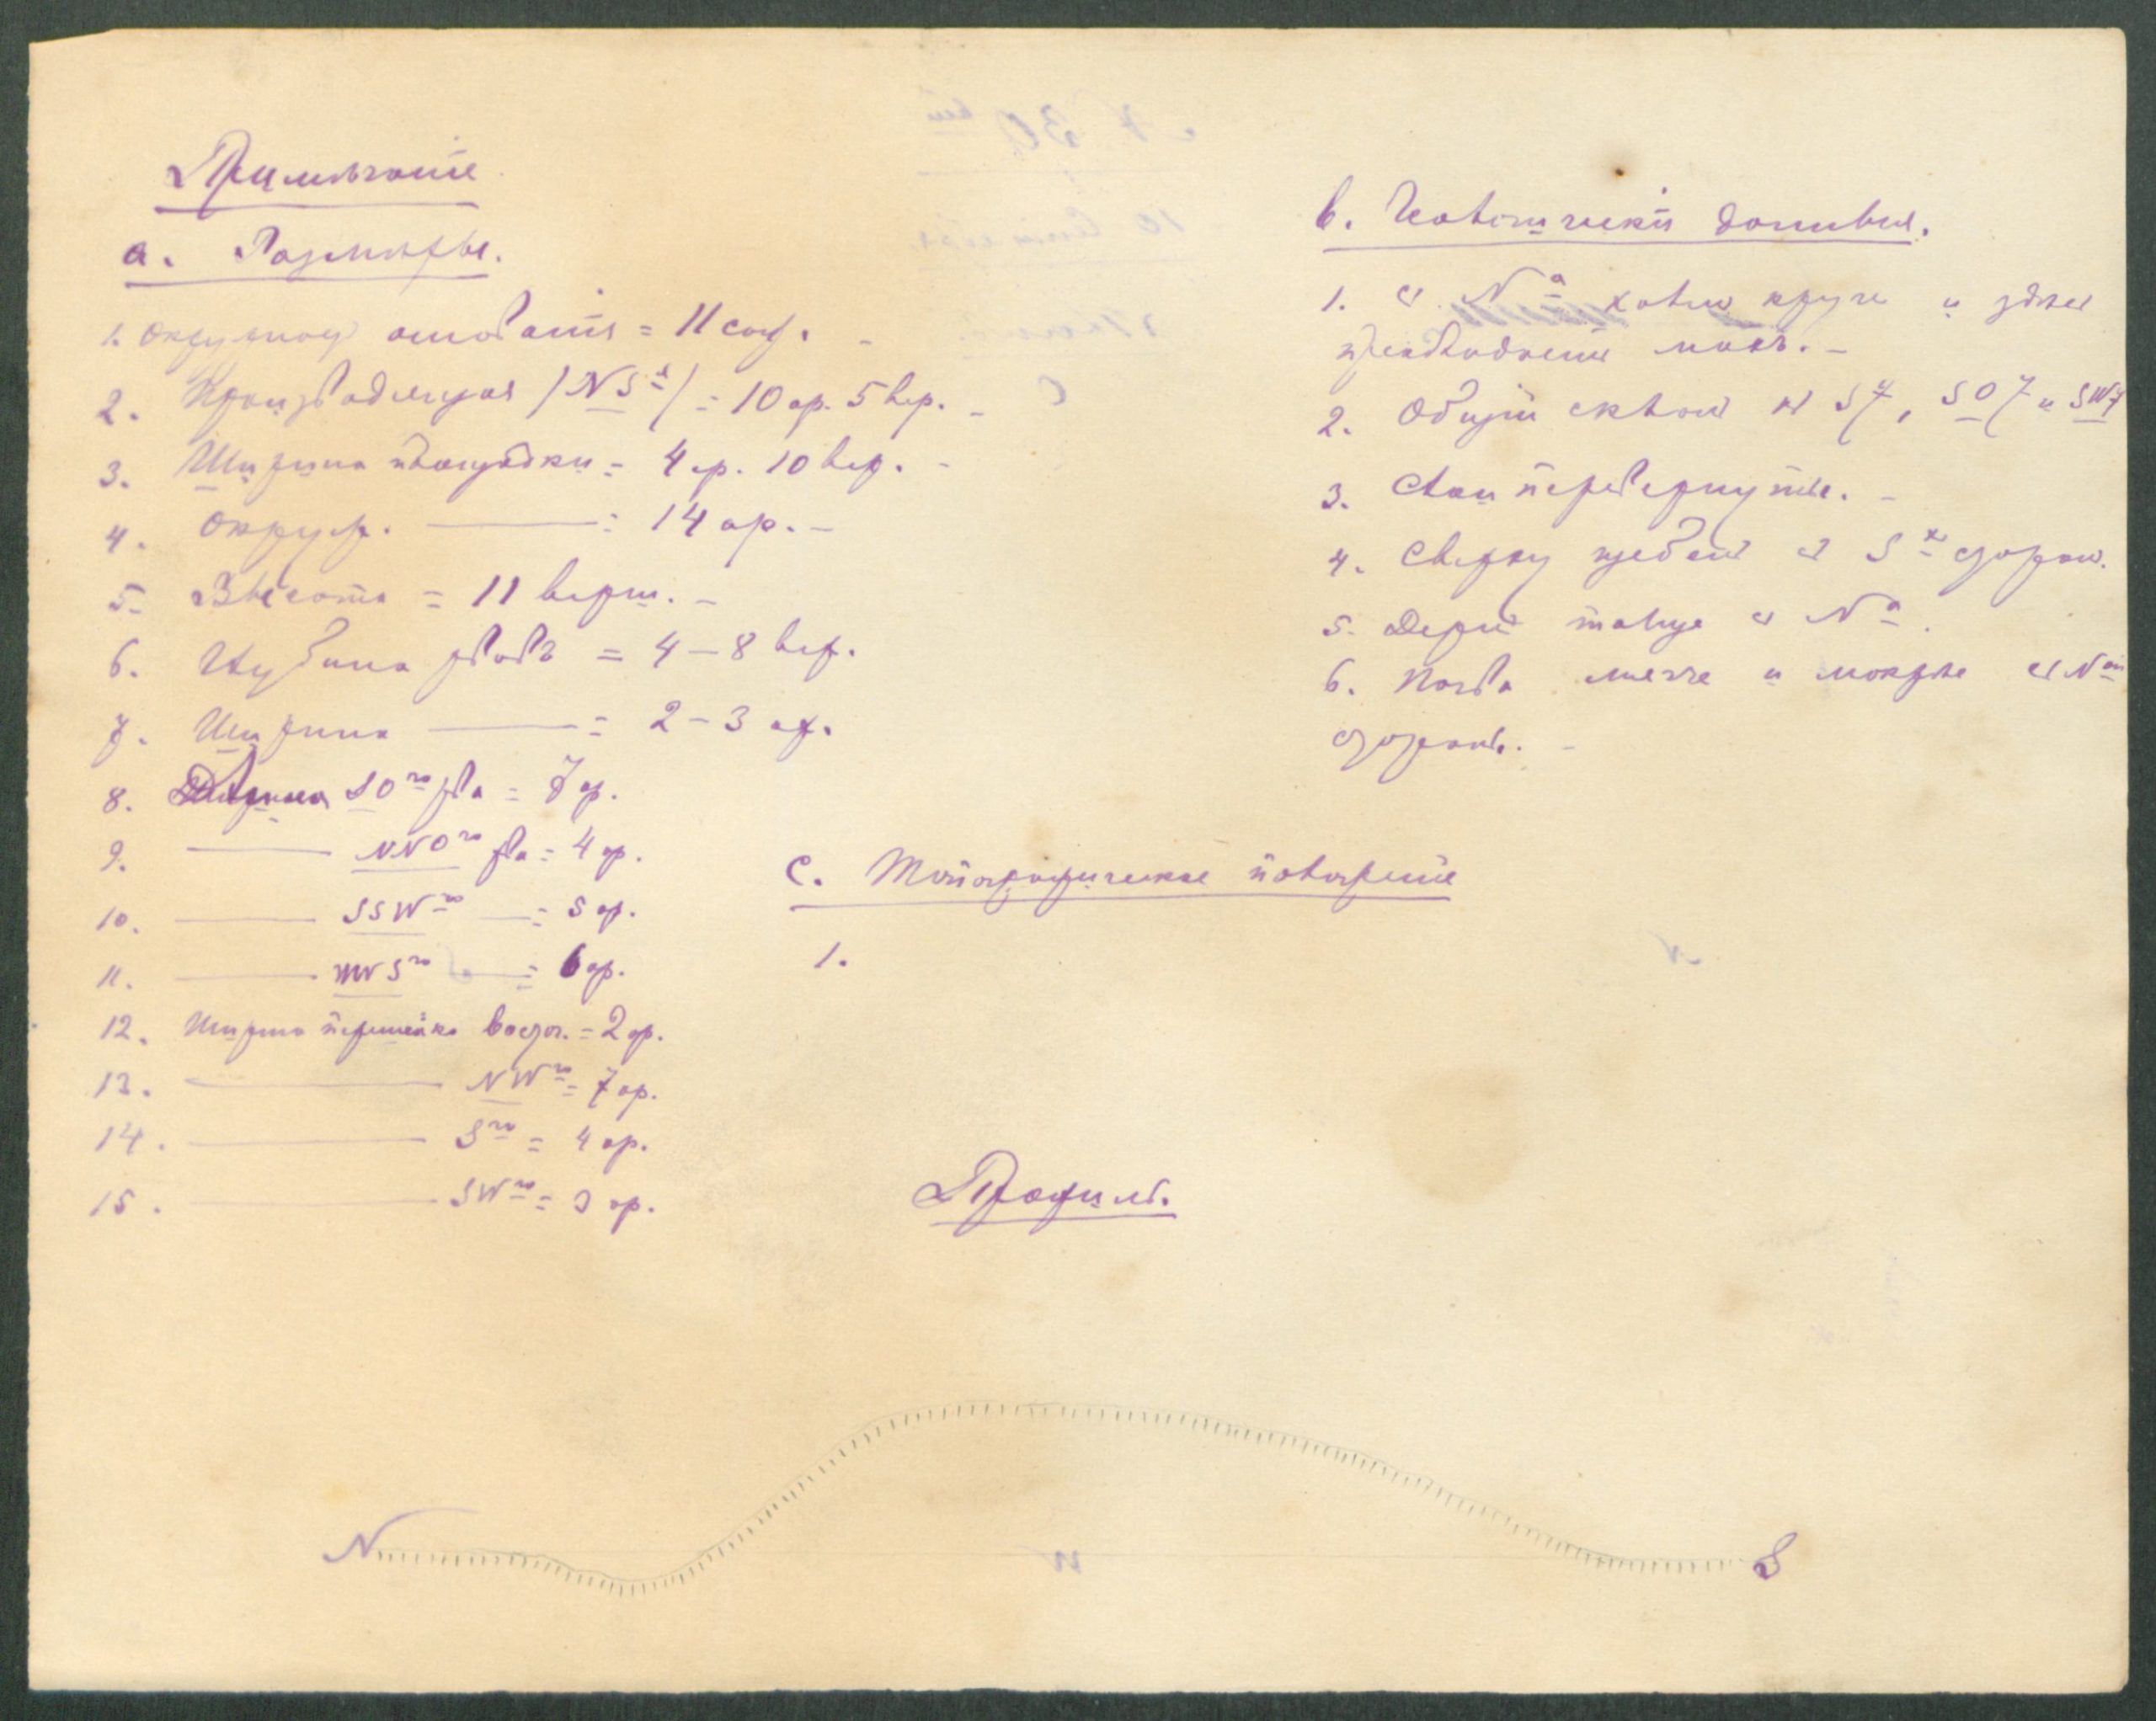 Примѣчаніе
а. Размѣры.
1. Окружность основанія = 11 саж. -
2. Производящая /NSя/ = 10 ар. 5 вер. -
3. Ширина площадки = 4 ар. 10 вер. -
4. Окруж. —— = 14 ар. -
5. Высота = 11 верш. -
6. Глубина рвовъ = 4 – 8 вер.
7. Ширина —— = 2 – 3 ар.
8. SOго рва = 7 ар.
9. —— NNOго рва = 4 ар.
10. —— SSWго — = 5 ар.
11. —— го — = 6 ар.
12. Ширина перешейка восточ. = 2 ар.
13. —— NWго = 7 ар.
14. —— Sго = 4 ар.
15. —— SWго = 3 ар.
b. данныя.
1. съ Nа холмъ круче и здѣсь
2. Общій склонъ къ S у, SO у и SW у
3. Слои перевернуты. -
4. Сверху щебень съ S х сторон.
5. Дернъ толще съ Nа.
6. Почва мягче и мокрѣе съ Nой
стороны. -
с. Топографическое положеніе
1.
Профиль.
N S